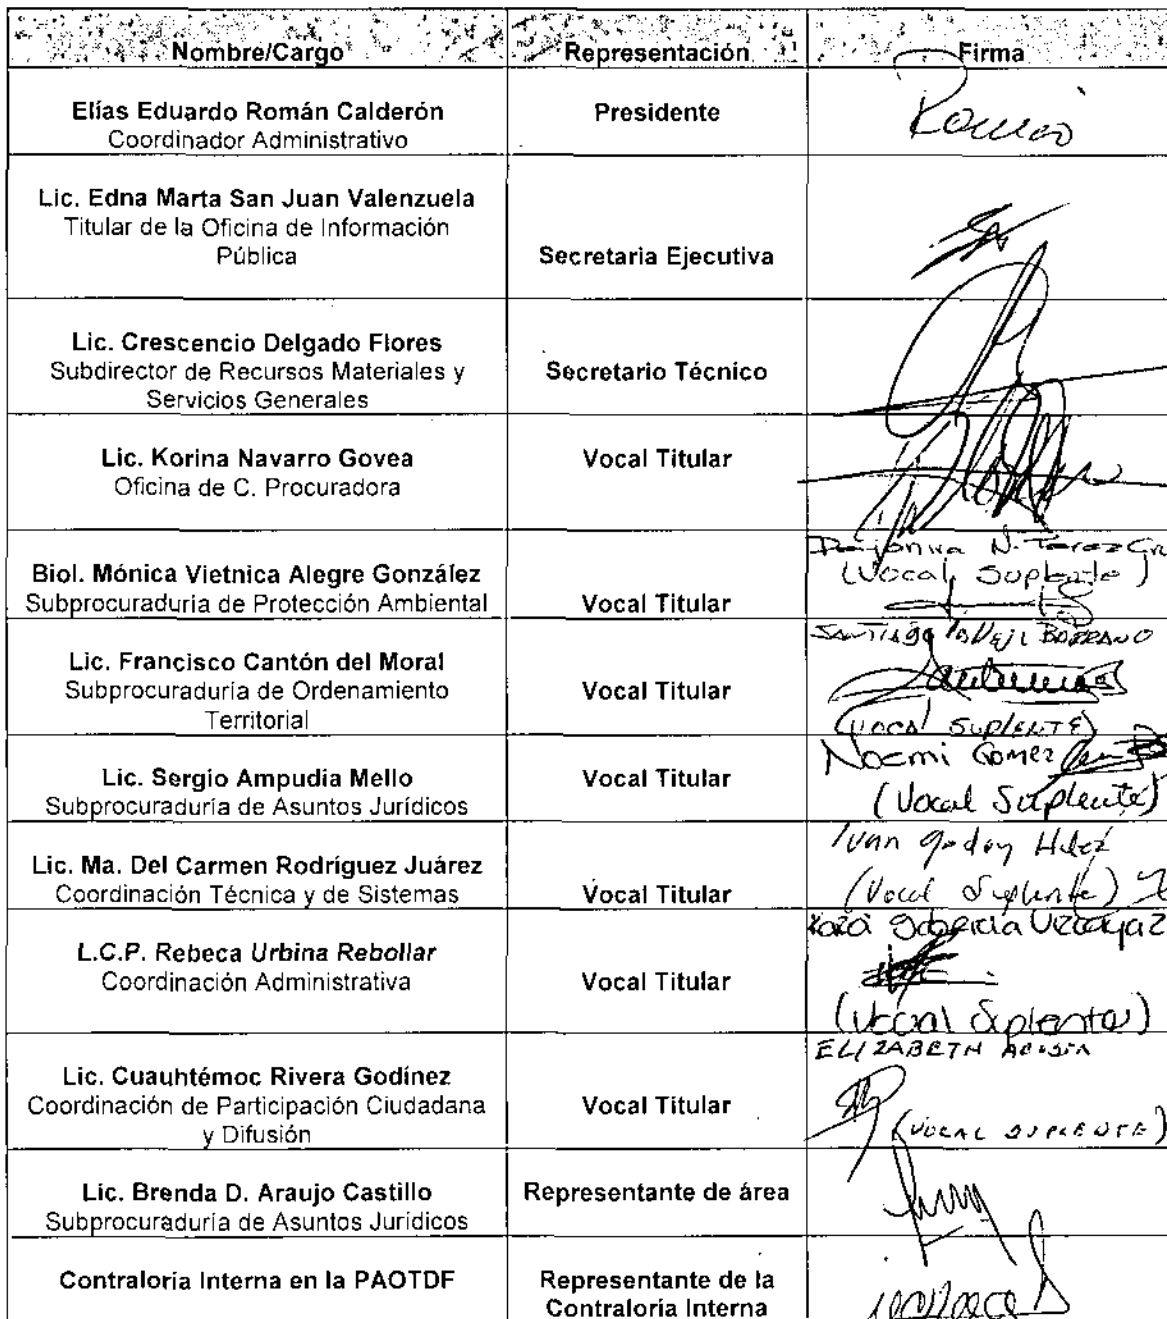 Nombre/Cargo Representación Firma
Elías Eduardo Román Calderón
Coordinador Administrativo
Presidente
Lic. Edna Marta San Juan Valenzuela
Titular de la Oficina de Información
Pública
Secretaria Ejecutiva
Lic. Crescencio Delgado Flores
Subdirector de Recursos Materiales y
Servicios Generales
Secretario Técnico
Lic. Korina Navarro Govea
Oficina de C. Procuradora
Vocal Titular
Biol. Mónica Vietnica Alegre González
Subprocuraduría de Protección Ambiental
Vocal Titular
(Vocal Suplente)
Lic. Francisco Cantón del Moral
Subprocuraduría de Ordenamiento
Territorial
Vocal Titular
SANTIAGO
(VOCAL SUPLENTE)
Lic. Sergio Ampudia Mello
Subprocuraduría de Asuntos Jurídicos
Vocal Titular
Noemi Gomez
(Vocal Suplente)
Lic. Ma. Del Carmen Rodríguez Juárez
Coordinación Técnica y de Sistemas
Vocal Titular
Ivan Godoy
(Vocal Suplente)
L.C.P. Rebeca Urbina Rebollar
Coordinación Administrativa
Vocal Titular
(Vocal Suplente)
Lic. Cuauhtémoc Rivera Godínez
Coordinación de Participación Ciudadana
y Difusión
Vocal Titular
ELIZABETH
(VOCAL SUPLENTE)
Lic. Brenda D. Araujo Castillo
Subprocuraduría de Asuntos Jurídicos
Representante de área
Contraloría Interna en la PAOTDF
Representante de la
Contraloría Interna